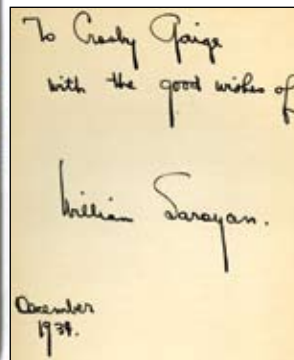 To Crosby Gaige
with the good wishes of
William Saroyan.
December
1934.